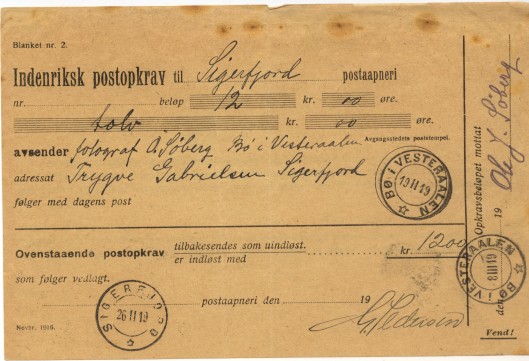 Blanket nr. 2.
Indenriksk postopkrav til Sigerfjord postaapneri
nr. beløp 12 kr. 00 øre.
tolv kr. 00 øre.
Avgangsstedets poststempel.
avsender fotograf Søberg Bø i Vesteraalen
adressat Trygve Gabrielsen Sigerfjord
følger med dagens post
BØ I VESTERAALEN
19 II 19
Ovenstaaende postopkrav tilbakesendes som uindløst.
er indløst med kr. 1200
som følger vedlagt.
postaapneri den 19
SIGERFJORD
26 II 19
Pedersen
Novbr. 1910.
Opkravsbeløpet mottat
den 19
Ole J. Søberg
BØ I VESTERAALEN
III 19
Vend!